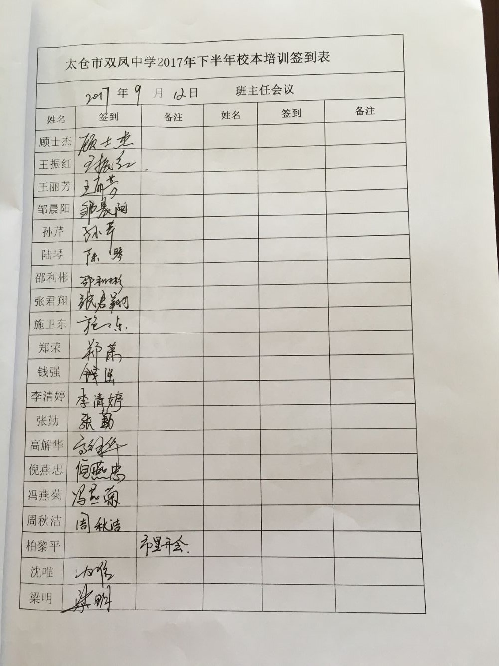 太仓市双凤中学2017年下半年校本培训签到表
2017 年 9 月 12日 班主任会议
姓名 签到 备注 姓名 签到 备注
顾士杰 顾士杰
王振红 王振红
王丽芳 王丽芳
邹晨阳 邹晨阳
孙芹 孙芹
陆琴 陆琴
邵利彬 邵利彬
张君翔 张君翔
施卫东 施卫东
郑荣 郑荣
钱强 钱强
李清婷 李清婷
张勤 张勤
高解华
倪燕忠 倪燕忠
冯燕菊 冯燕菊
周秋洁 周秋洁
柏黎平 市里开会.
沈唯
梁明 梁明